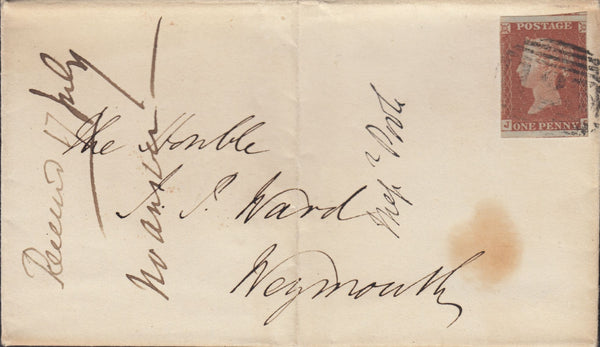 POSTAGE
ONE PENNY
The Honble
S. P. Ward
Weymouth
Received 17 July
no answer